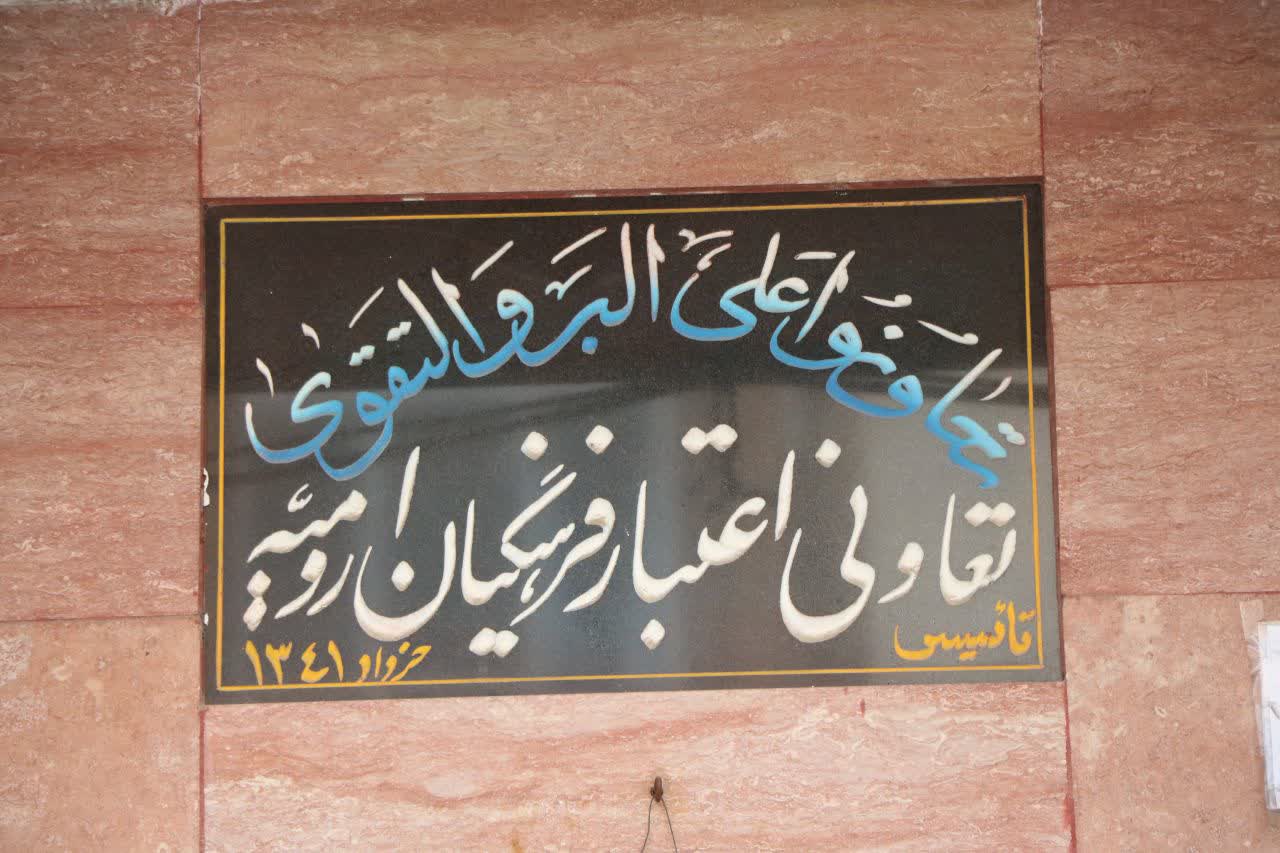 تعاونوا علی البر و التقوی
تعاونی اعتبار فرهنگیان ارومیه
تائسیس خرداد ۱۳۴۱